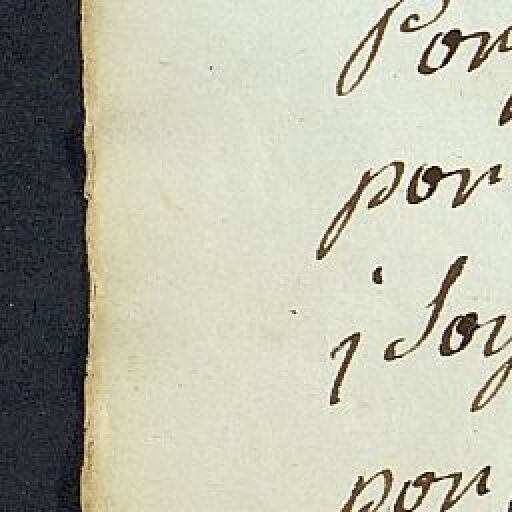 Por
por
j soy
por